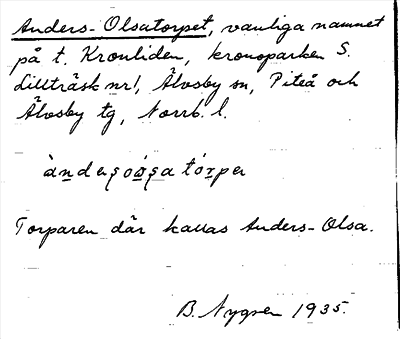 Anders-Olsatorpet, vanliga namnet
på t. Kronliden, kronoparken S.
Lillträsk nr 1, Älvsby sn, Piteå och
Älvsby tg, Norrb. l.
Torparen där kallas Anders-Olsa.
B. Nygren 1935.